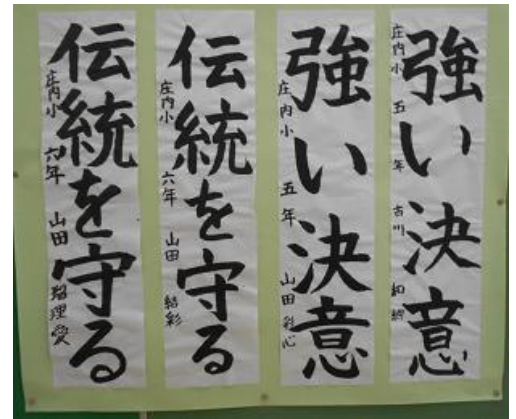 強い決意
庄内小 五年 古川 和
強い決意
庄内小 五年 山田 彩心
伝統を守る
庄内小 六年 山田 結彩
伝統を守る
庄内小 六年 山田 瑠理愛